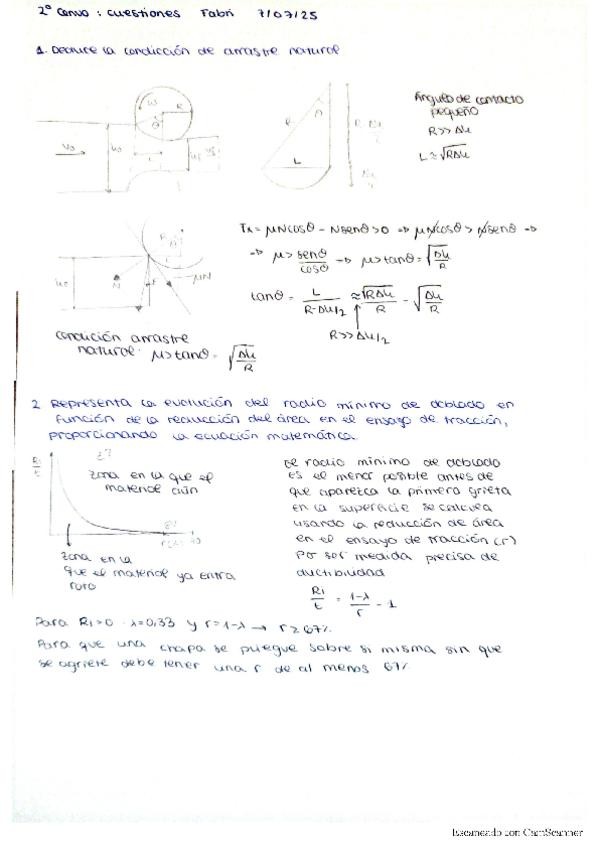 2º Convo: Cuestiones Fabri 7/07/25
1. Deduce la condicción de arrastre natural
Ángulo de contacto
pequeño
R>>Δh
L≈√RΔh
TA = μNcosθ - Nsenθ > 0 ⇒ μNcosθ > Nsenθ ⇒
⇒ μ > senθ/cosθ → μ > tanθ = √Δh/R
tanθ = L/(R-Δh/2) ≈ √RΔh/R = √Δh/R
R>>Δh/2
Condición arrastre
natural: μ>tanθ = √Δh/R
2 Representa la evolución del radio mínimo de doblado en
función de la reducción del área en el ensayo de tracción,
proporcionando la ecuación matemática.
R1/t
Zona en la que el
material aún
Zona en la
que el material ya entra
roto
El radio mínimo de doblado
es el menor posible antes de
que aparezca la primera grieta
en la superficie se calcula
usando la reducción de área
en el ensayo de tracción (r)
por ser medida precisa de
ductibilidad
R1/t = (1-λ)/r - 1
Para R1=0 · λ=0,33 y r=1-λ → r≥67%
Para que una chapa se pliegue sobre si misma sin que
se agriete debe tener una r de al menos 67%
Escaneado con CamScanner